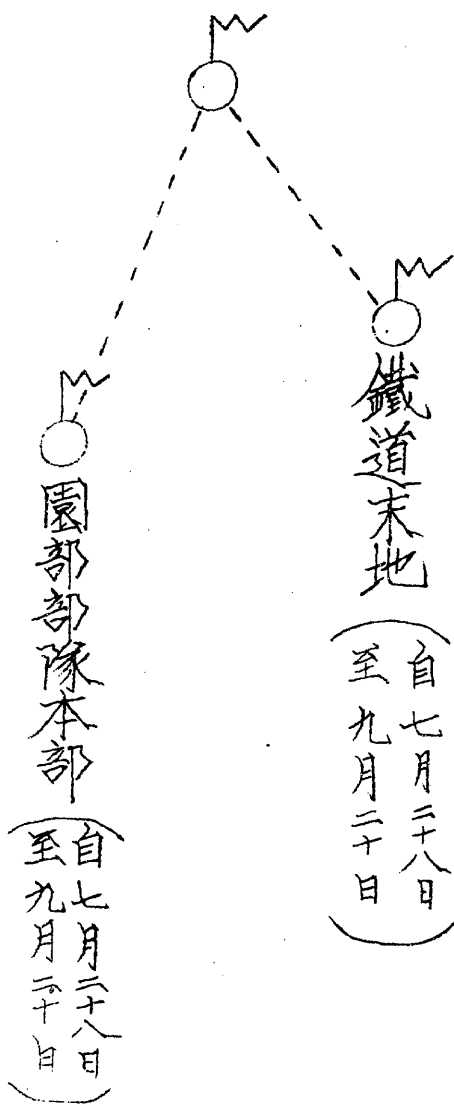 鐵道末地
(自七月二十八日
至九月二十日)
園部部隊本部
(自七月二十八日
至九月二十日)